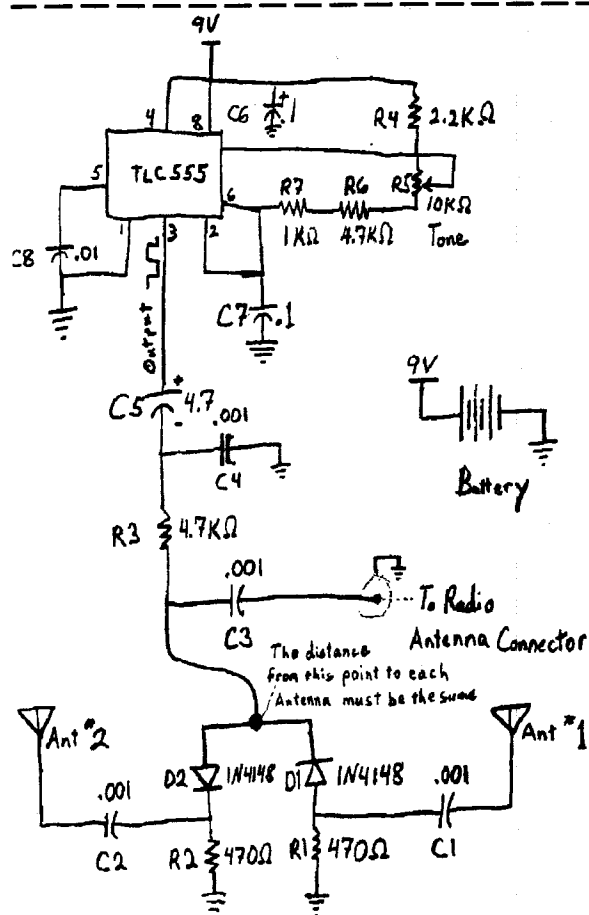 9V
4
8
C6
+
.1
R4
2.2KΩ
TLC555
5
6
R7
R6
R5
10KΩ
1KΩ
4.7KΩ
Tone
1
3
2
.01
C7
.1
Output
C5
+
4.7
-
.001
C4
9V
Battery
R3
4.7KΩ
.001
C3
To Radio
Antenna Connector
The distance
from this point to each
Antenna must be the same
Ant #2
Ant #1
D2
1N4148
D1
1N4148
.001
.001
C2
R2
470Ω
R1
470Ω
C1